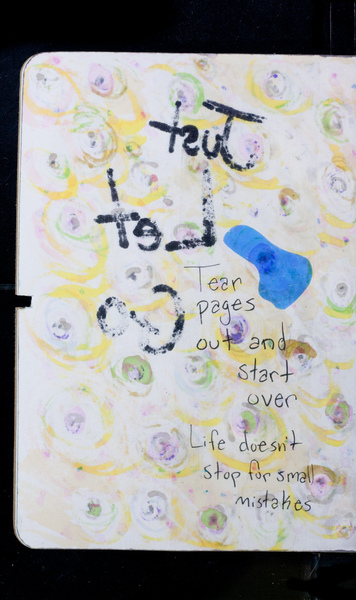 Just
Let
Go
Tear
pages
out and
start
over
Life doesn't
stop for small
mistakes